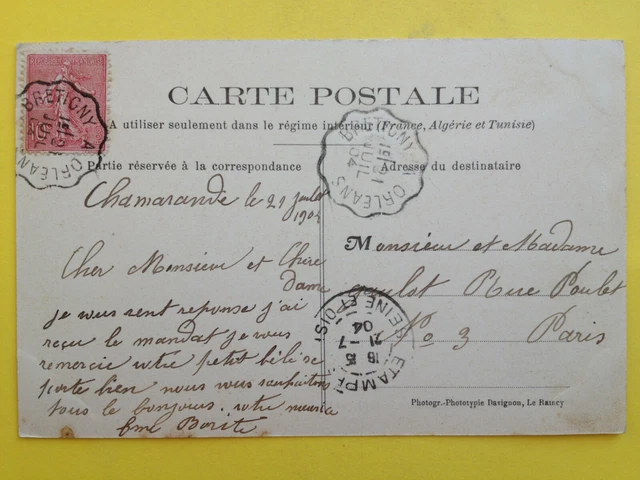 CARTE POSTALE
A utiliser seulement dans le régime intérieur (France, Algérie et Tunisie)
Partie réservée à la correspondance
Adresse du destinataire
BRETIGNY A ORLÉANS
BRETIGNY A ORLÉANS
21 JUIL 04
Chamarande le 21 juillet
1904
Cher Monsieur et Chère
dame
je vous rent reponse j'ai
reçu le mandat je vous
remercie votre petit bébé se
porte bien nous vous souhaitons
tous le bonjour votre
Monsieur et Madame
Rue Poulet
No 3 Paris
ETAMPES SEINE ET OISE
16 15
21 - 7
04
Photogr.-Phototypie Davignon, Le Raincy